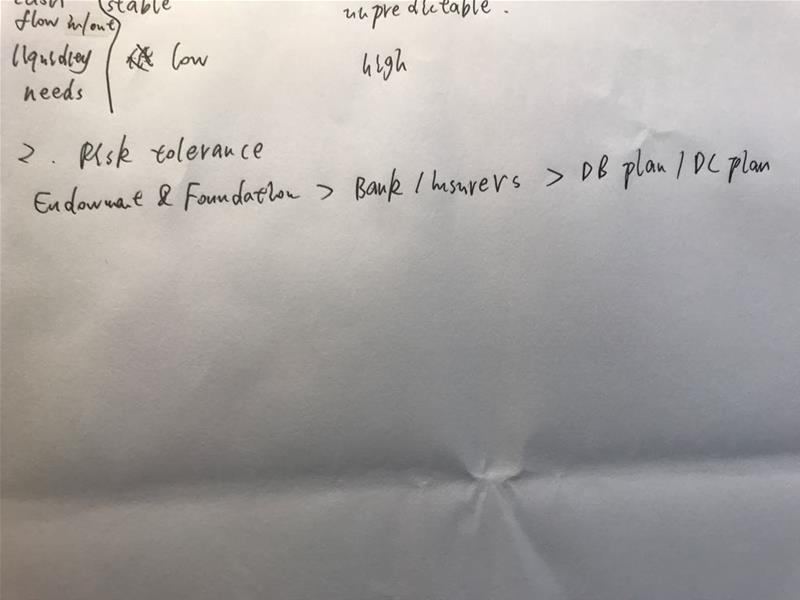 stable
flow in/out
unpredictable.
liquidity low high
needs
2. Risk tolerance
Endowment & Foundation > Bank / Insurers > DB plan / DC plan